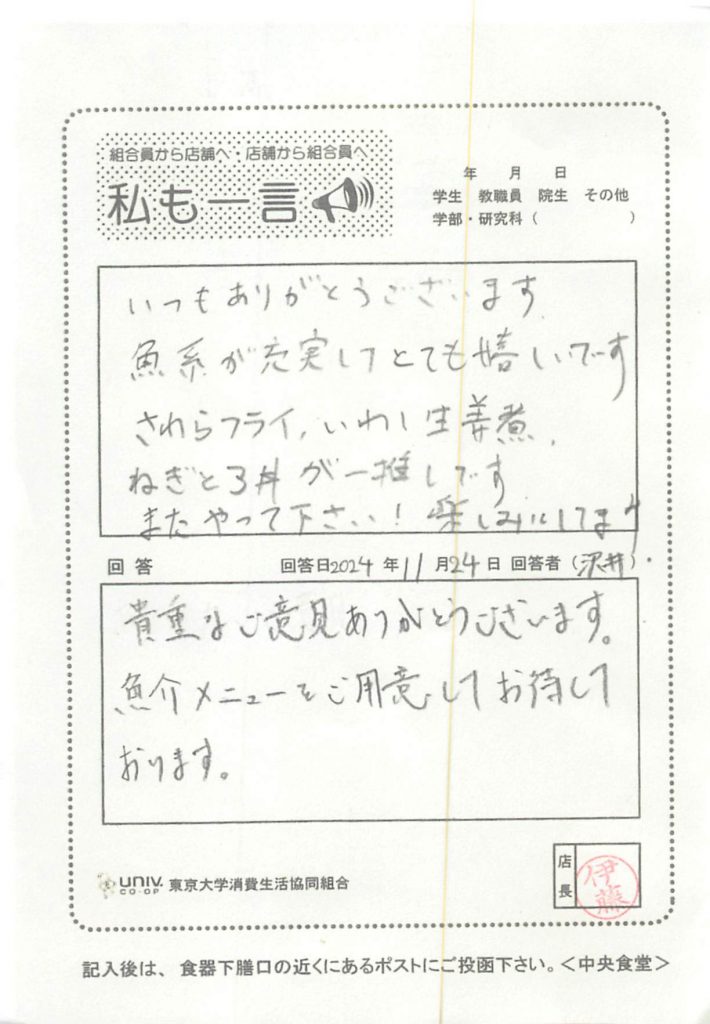 組合員から店舗へ・店舗から組合員へ
私も一言
年 月 日
学生 教職員 院生 その他
学部・研究科（ ）
いつもありがとうございます
魚系が充実してとても嬉しいです
さわらフライ、いわし生姜煮、
ねぎとろ丼が一推しです
またやって下さい！楽しみにしてます
回答 回答日2024年11月24日 回答者（沢井）
貴重なご意見ありがとうございます。
魚介メニューをご用意してお待して
おります。
UNIV. CO-OP 東京大学消費生活協同組合
店長 伊藤
記入後は、食器下膳口の近くにあるポストにご投函下さい。＜中央食堂＞